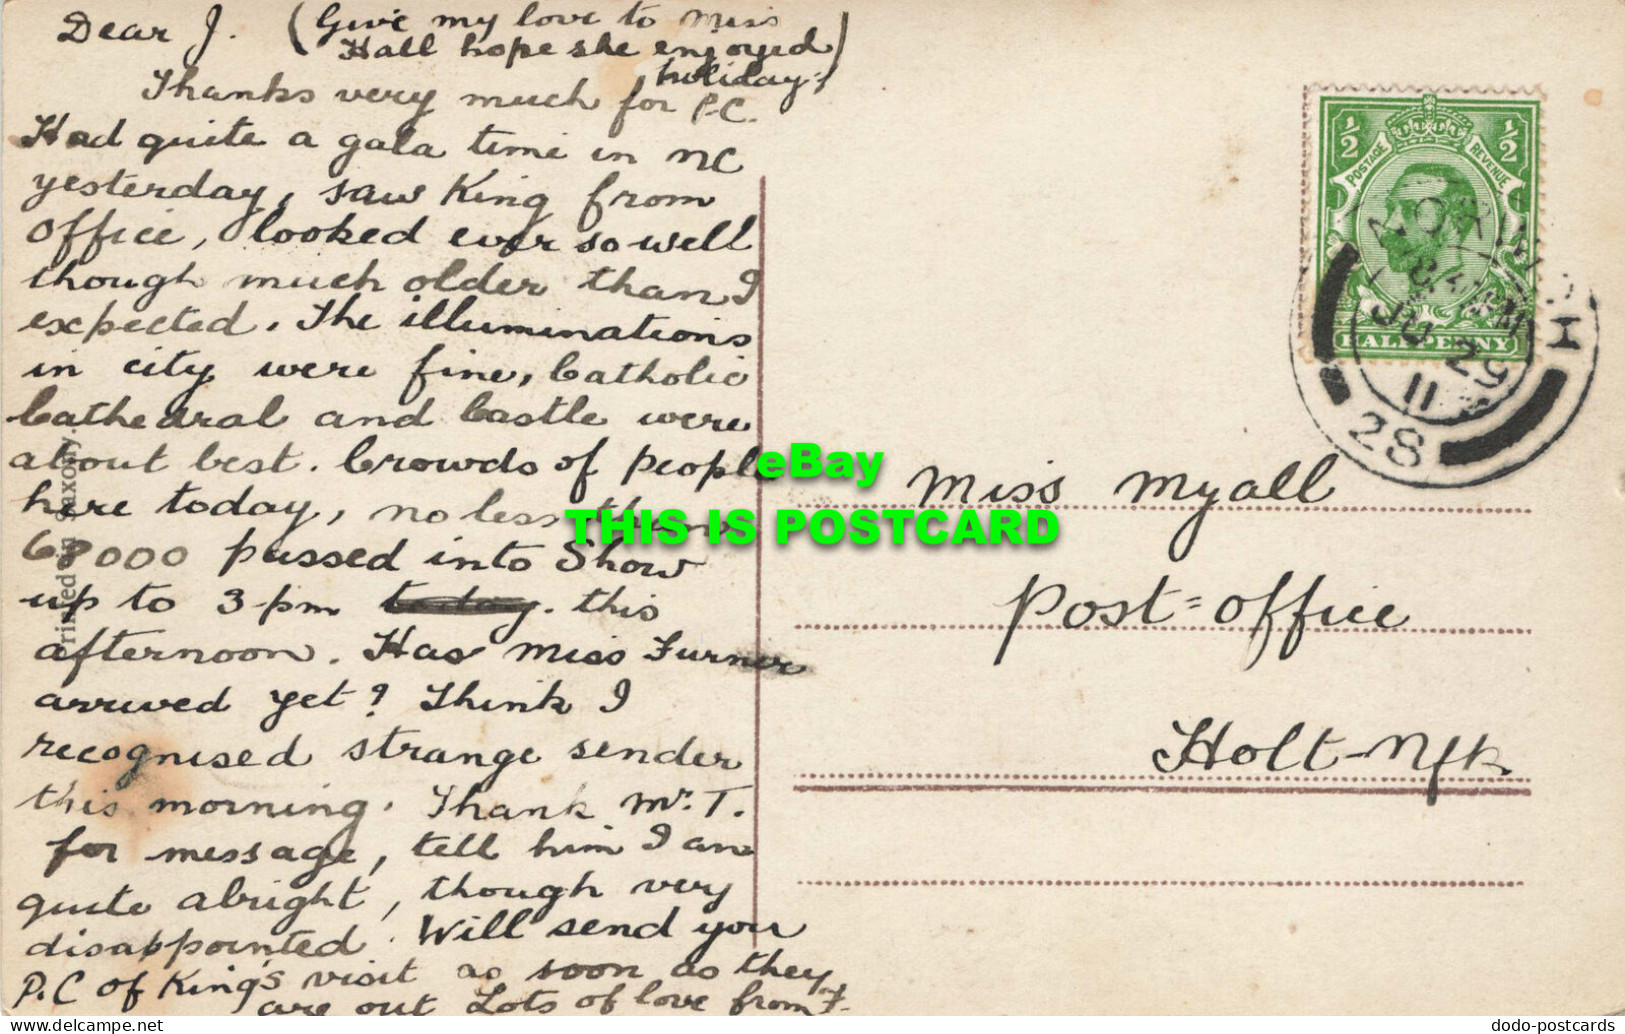 Dear J. (Give my love to Miss
Hall hope she enjoyed
holiday)
Thanks very much for P.C.
Had quite a gala time in NC
yesterday, saw King from
Office, looked ever so well
though much older than I
expected. The illuminations
in city were fine, Catholic
Cathedral and Castle were
about best. Crowds of people
here today, no less than
68000 passed into Show
up to 3 pm today. this
afternoon. Has Miss Turner
arrived yet? Think I
recognised strange sender
this morning. Thank Mr. T.
for message, tell him I am
quite alright, though very
disappointed. Will send you
P.C of King's visit as soon as they
are out Lots of love from F.
Printed in Saxony.
½ ½
POSTAGE REVENUE
HALFPENNY
NORWICH
8 PM
JU 29
11
28
Miss Myall
Post=Office
Holt-Nfk.
eBay
THIS IS POSTCARD
dodo-postcards
© www.delcampe.net